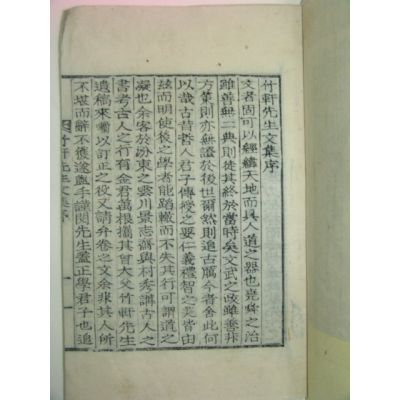 竹軒先生文集序
文者固可以經緯天地而具人道之器也堯舜之治
雖善無二典則徒其終於當時矣文武之政雖善非
方策則亦無證於後世爾然則追古厲今者舍此何
以哉古昔哲人君子傳授之要仁義禮智之說皆由
玆而明使後之學者能踏轍而不失其行可謂道之
凝也余客於汾東之雲川景志齋與村秀講古人之
書考古人之行有金君萬根攜其曾大父竹軒先生
遺稿來囑以訂正之役又請弁卷之文余非其人所
不堪而辭不獲遂盥手謹閱先生蓋正學君子也追
竹軒先生文集序
一